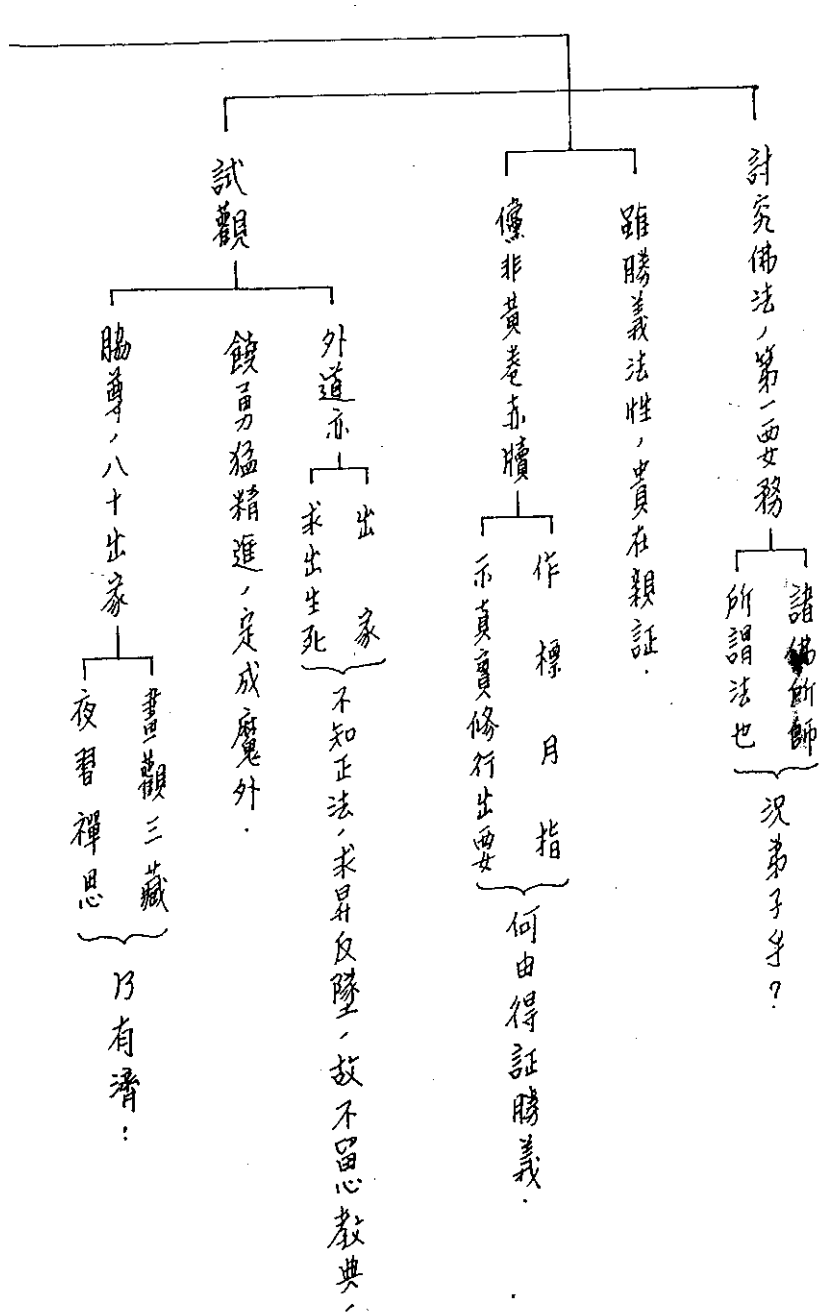 討究佛法，第一要務
諸佛所師
所謂法也
況弟子乎？
雖勝義法性，貴在親証．
儻非黃卷赤牘
作標月指
示真實修行出要
何由得証勝義．
試觀
外道亦
出家
求出生死
不知正法，求昇反墜，故不留心教典，
饒勇猛精進，定成魔外．
脇尊，八十出家
晝觀三藏
夜習禪思
乃有濟：